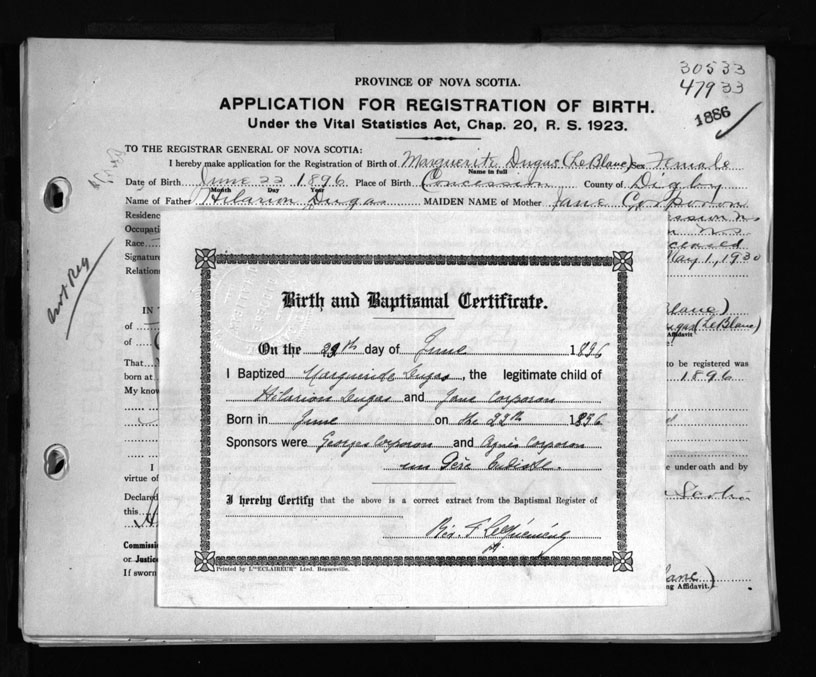 30533
47933
1886
PROVINCE OF NOVA SCOTIA.
APPLICATION FOR REGISTRATION OF BIRTH.
Under the Vital Statistics Act, Chap. 20, R. S. 1923.
TO THE REGISTRAR GENERAL OF NOVA SCOTIA:
I hereby make application for the Registration of Birth of Marguerite Dugas (LeBlanc) Sex Female
Name in full
Date of Birth June 22 1896 Place of Birth Concession County of Digby
Month Day Year
Name of Father Hilarion Dugas MAIDEN NAME of Mother Jane Corporon
Residence
Occupati
Race
Signature May 1, 1930
Relations
not Reg
IN T
of Dugas (LeBlanc)
Affidavit
of
That to be registered was
born at 1896
My know
I e under oath and by
virtue of
Declared
this
Commissi
or Justice
If sworn
ng Affidavit.
Birth and Baptismal Certificate.
On the 29th day of June 1896
I Baptized Marguerite Dugas, the legitimate child of
Hilarion Dugas and Jane Corporon
Born in June on the 22th 1896
Sponsors were Georges Corporon and Agnès Corporon
I hereby Certify that the above is a correct extract from the Baptismal Register of
Rev. F
Printed by L'"ECLAIREUR" Lted. Beauceville.